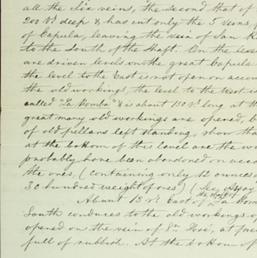 all the six veins, the second that of
200 ft deep & has cut only the 5 veins
of Capula, leaving the vein of San R
to the South of the Shaft. On the leve
are driven levels on the great Capula
the level to the East is not open on accou
the old workings, the level to the west is
called "La Comba" & is about 150 ft long at th
great many old workings are opened, b
of old pillars left standing, show tha
at the bottom of this level are the wo
probably have been abandoned on acco
the ores, (containing only 12 ounces
30 hundred weight of ores)
About 15 ft East of La Comba
South conduces to the old workings of
opened on the vein of San José, at pres
full of rubbish. At the bottom of